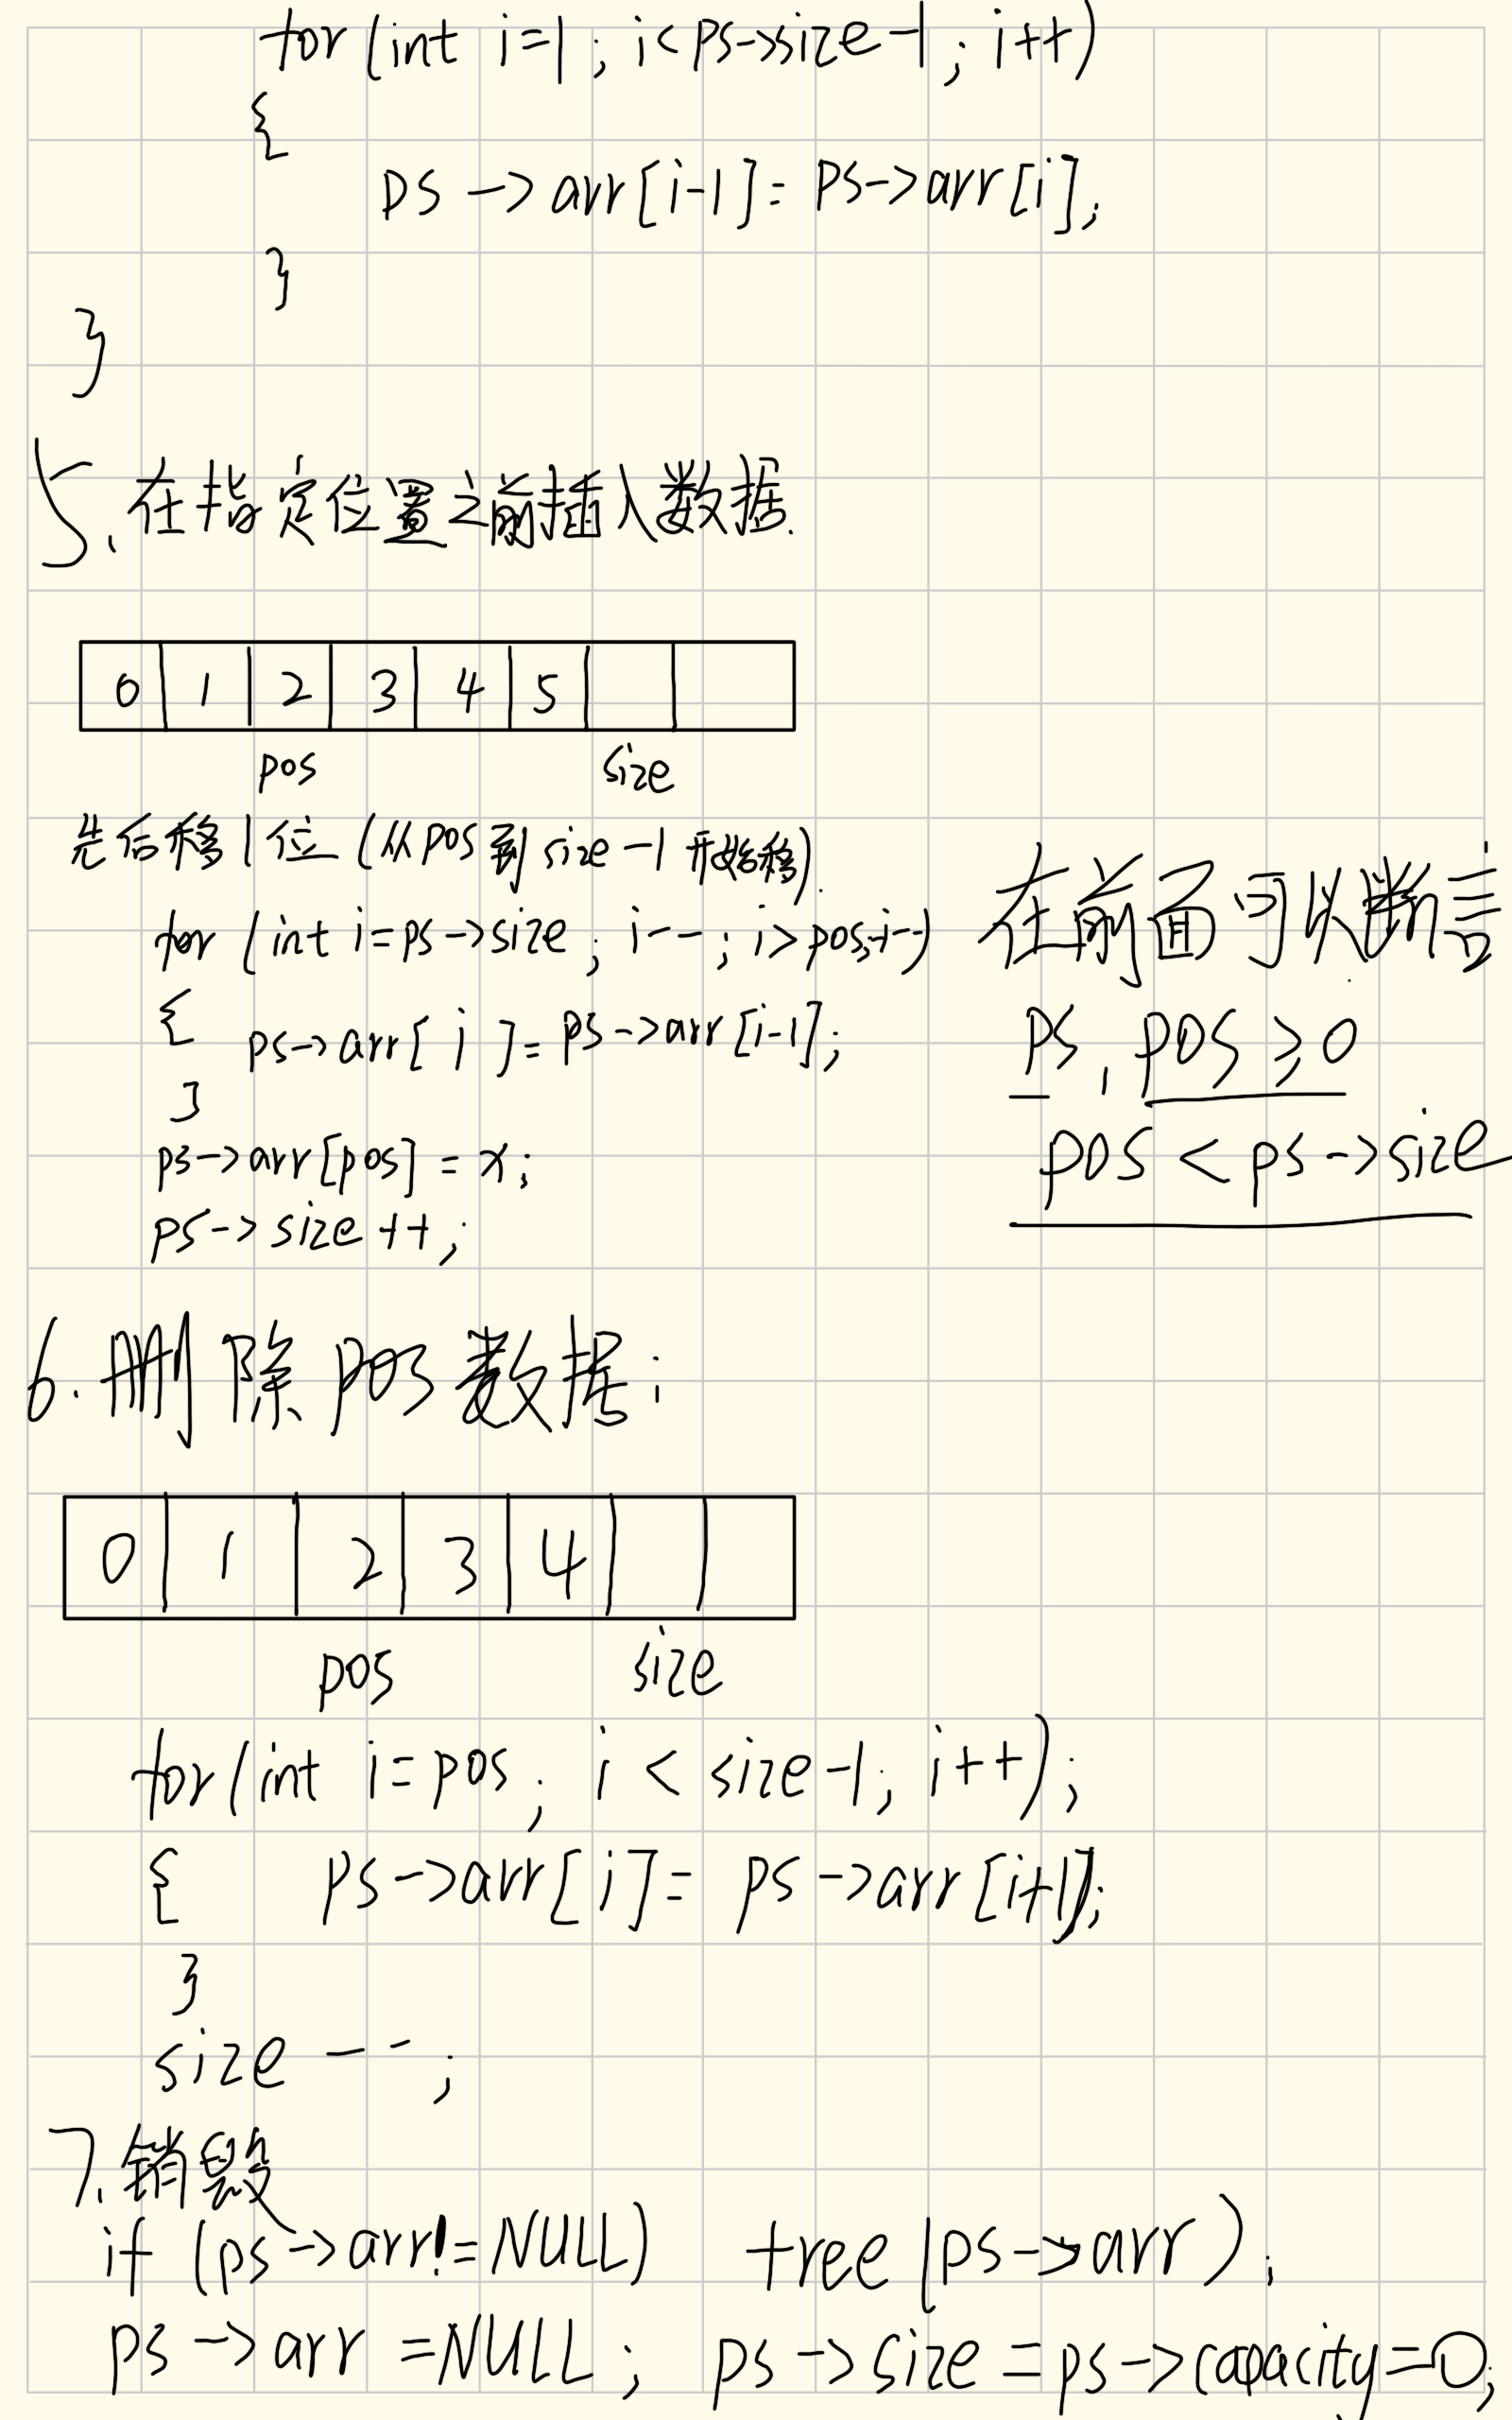 for(int i=1; i<ps->size-1; i++)
{
ps->arr[i-1]=ps->arr[i];
}
}
5、在指定位置之前插入数据.
0 1 2 3 4 5
pos size
先后移1位(从pos到size-1开始移).
for(int i=ps->size; i--; i>pos;i--)
{ ps->arr[i]=ps->arr[i-1];
}
ps->arr[pos]=x;
ps->size++;
在前面可以断言
ps, pos≥0
pos<ps->size
6.删除pos数据:
0 1 2 3 4
pos size
for(int i=pos; i<size-1; i++);
{ ps->arr[i]=ps->arr[i+1];
}
size--;
7.销毁
if(ps->arr!=NULL) free(ps->arr);
ps->arr=NULL; ps->size=ps->capacity=0;